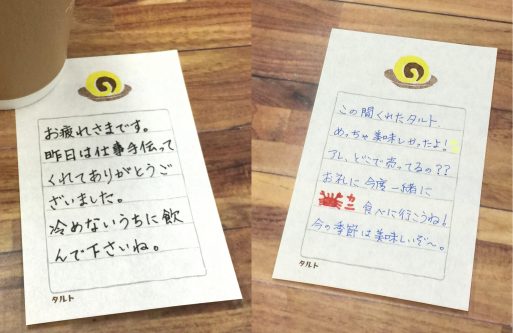 お疲れさまです。
昨日は仕事手伝って
くれてありがとうご
ざいました。
冷めないうちに飲
んで下さいね。
タルト
この間くれたタルト
めっちゃ美味しかったよ!
アレ、どこで売ってるの??
お礼に今度一緒に
カニ食べに行こうね!
今の季節は美味しいぞ〜。
タルト